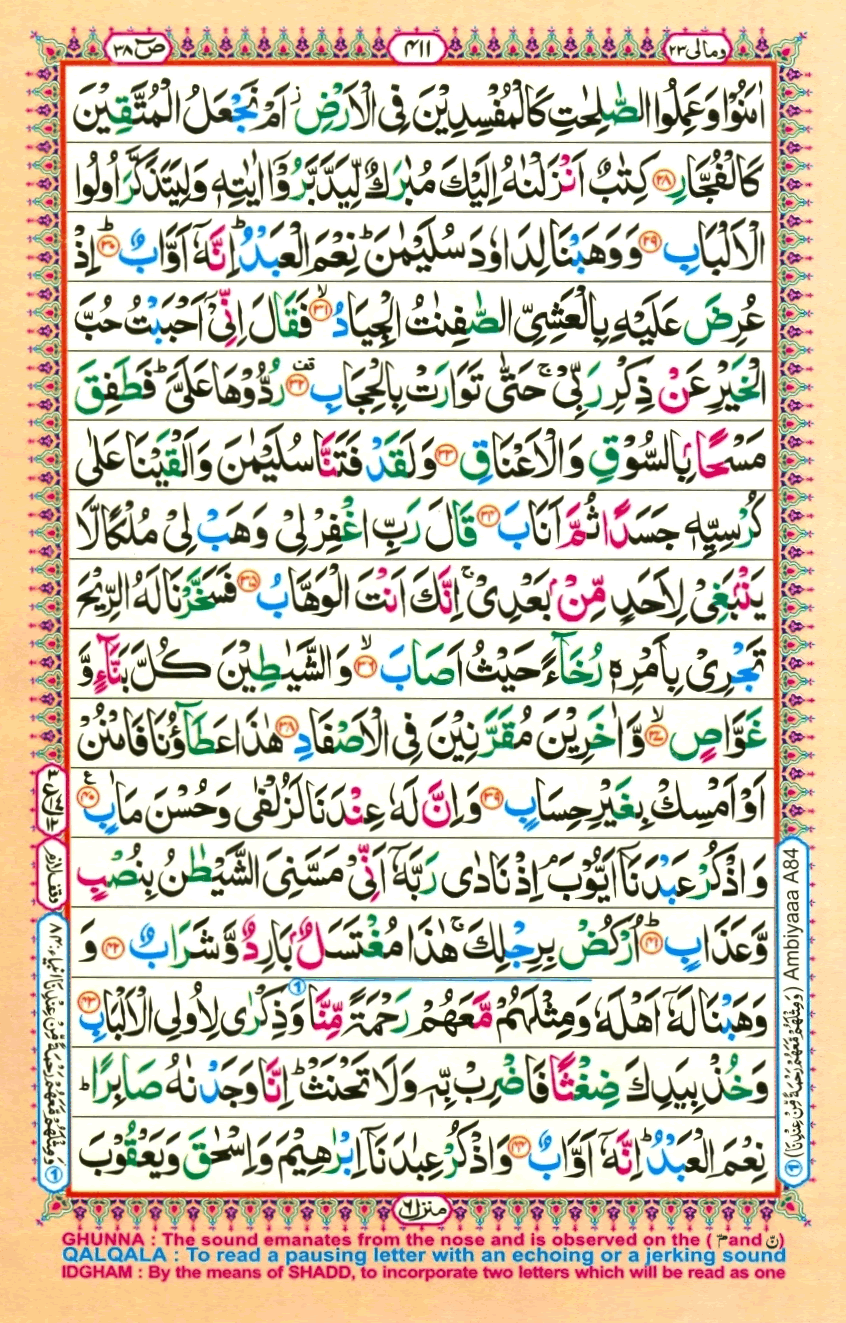 صٓ ٣٨
٤١١
ومالی ٢٣
اٰمَنُوۡا وَعَمِلُوا الصّٰلِحٰتِ كَالۡمُفۡسِدِيۡنَ فِى الۡاَرۡضِ ز اَمۡ نَجۡعَلُ الۡمُتَّقِيۡنَ
كَالۡفُجَّارِ ﴿٢٨﴾ كِتٰبٌ اَنۡزَلۡنٰهُ اِلَيۡكَ مُبٰرَكٌ لِّيَدَّبَّرُوۡۤا اٰيٰتِهٖ وَلِيَتَذَكَّرَ اُولُوا
الۡاَلۡبَابِ ﴿٢٩﴾ وَوَهَبۡنَا لِدَاوٗدَ سُلَيۡمٰنَ ؕ نِعۡمَ الۡعَبۡدُ ؕ اِنَّهٗۤ اَوَّابٌ ؕ ﴿٣٠﴾ اِذۡ
عُرِضَ عَلَيۡهِ بِالۡعَشِىِّ الصّٰفِنٰتُ الۡجِيَادُ ۙ ﴿٣١﴾ فَقَالَ اِنِّىۡۤ اَحۡبَبۡتُ حُبَّ
الۡخَيۡرِ عَنۡ ذِكۡرِ رَبِّىۡ ۚ حَتّٰى تَوَارَتۡ بِالۡحِجَابِ قف ﴿٣٢﴾ رُدُّوۡهَا عَلَىَّ ؕ فَطَفِقَ
مَسۡحًۢا بِالسُّوۡقِ وَالۡاَعۡنَاقِ ﴿٣٣﴾ وَلَقَدۡ فَتَنَّا سُلَيۡمٰنَ وَاَلۡقَيۡنَا عَلٰى
كُرۡسِيِّهٖ جَسَدًا ثُمَّ اَنَابَ ﴿٣٤﴾ قَالَ رَبِّ اغۡفِرۡ لِىۡ وَهَبۡ لِىۡ مُلۡكًا لَّا
يَنۡۢبَغِىۡ لِاَحَدٍ مِّنۡۢ بَعۡدِىۡ ۚ اِنَّكَ اَنۡتَ الۡوَهَّابُ ﴿٣٥﴾ فَسَخَّرۡنَا لَهُ الرِّيۡحَ
تَجۡرِىۡ بِاَمۡرِهٖ رُخَآءً حَيۡثُ اَصَابَ ۙ ﴿٣٦﴾ وَالشَّيٰطِيۡنَ كُلَّ بَنَّآءٍ وَّ
غَوَّاصٍ ۙ ﴿٣٧﴾ وَّاٰخَرِيۡنَ مُقَرَّنِيۡنَ فِى الۡاَصۡفَادِ ﴿٣٨﴾ هٰذَا عَطَآؤُنَا فَامۡنُنۡ
اَوۡ اَمۡسِكۡ بِغَيۡرِ حِسَابٍ ﴿٣٩﴾ وَاِنَّ لَهٗ عِنۡدَنَا لَزُلۡفٰى وَحُسۡنَ مَاٰبٍ ﴿٤٠﴾
وَاذۡكُرۡ عَبۡدَنَاۤ اَيُّوۡبَ ۘ اِذۡ نَادٰى رَبَّهٗۤ اَنِّىۡ مَسَّنِىَ الشَّيۡطٰنُ بِنُصۡبٍ
وَّعَذَابٍ ؕ ﴿٤١﴾ اُرۡكُضۡ بِرِجۡلِكَ ۚ هٰذَا مُغۡتَسَلٌۢ بَارِدٌ وَّشَرَابٌ ﴿٤٢﴾ وَ
وَهَبۡنَا لَهٗۤ اَهۡلَهٗ وَمِثۡلَهُمۡ مَّعَهُمۡ رَحۡمَةً مِّنَّا وَذِكۡرٰى لِاُولِى الۡاَلۡبَابِ ﴿٤٣﴾
وَخُذۡ بِيَدِكَ ضِغۡثًا فَاضۡرِبْ بِّهٖ وَلَا تَحۡنَثۡ ؕ اِنَّا وَجَدۡنٰهُ صَابِرًا ؕ
نِعۡمَ الۡعَبۡدُ ؕ اِنَّهٗۤ اَوَّابٌ ﴿٤٤﴾ وَاذۡكُرۡ عِبٰدَنَاۤ اِبۡرٰهِيۡمَ وَاِسۡحٰقَ وَيَعۡقُوۡبَ
وقف لازم
① وَمِثۡلَهُمۡ مَّعَهُمۡ رَحۡمَةً مِّنۡ عِنۡدِنَا انبیاء :٨٤
① (وَمِثۡلَهُمۡ مَّعَهُمۡ رَحۡمَةً مِّنۡ عِنۡدِنَا) Ambiyaaa A84
منزل ٦
GHUNNA : The sound emanates from the nose and is observed on the ( مّ and نّ)
QALQALA : To read a pausing letter with an echoing or a jerking sound
IDGHAM : By the means of SHADD, to incorporate two letters which will be read as one